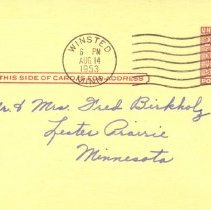 WINSTED
6 PM
AUG 14
1953
MINN.
THIS SIDE OF CARD IS FOR ADDRESS
Mr. & Mrs. Fred Birkholz
Lester Prairie
Minnesota